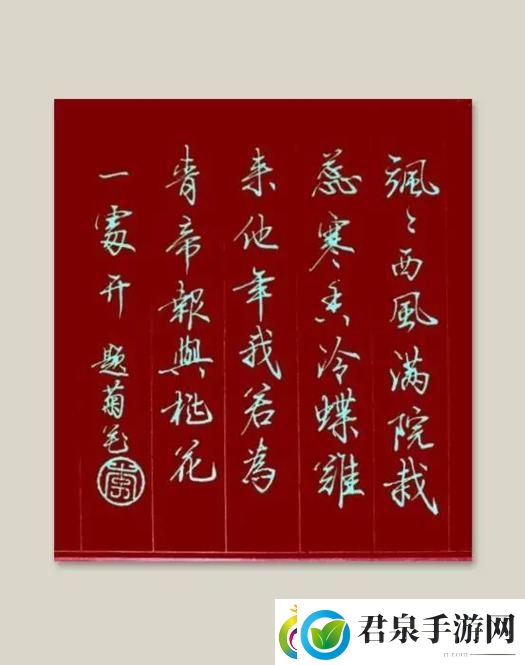 颯〻西風满院栽
蕊寒香冷蝶難
来他年我若為
青帝報與桃花
一處开 题菊花
君泉手游网